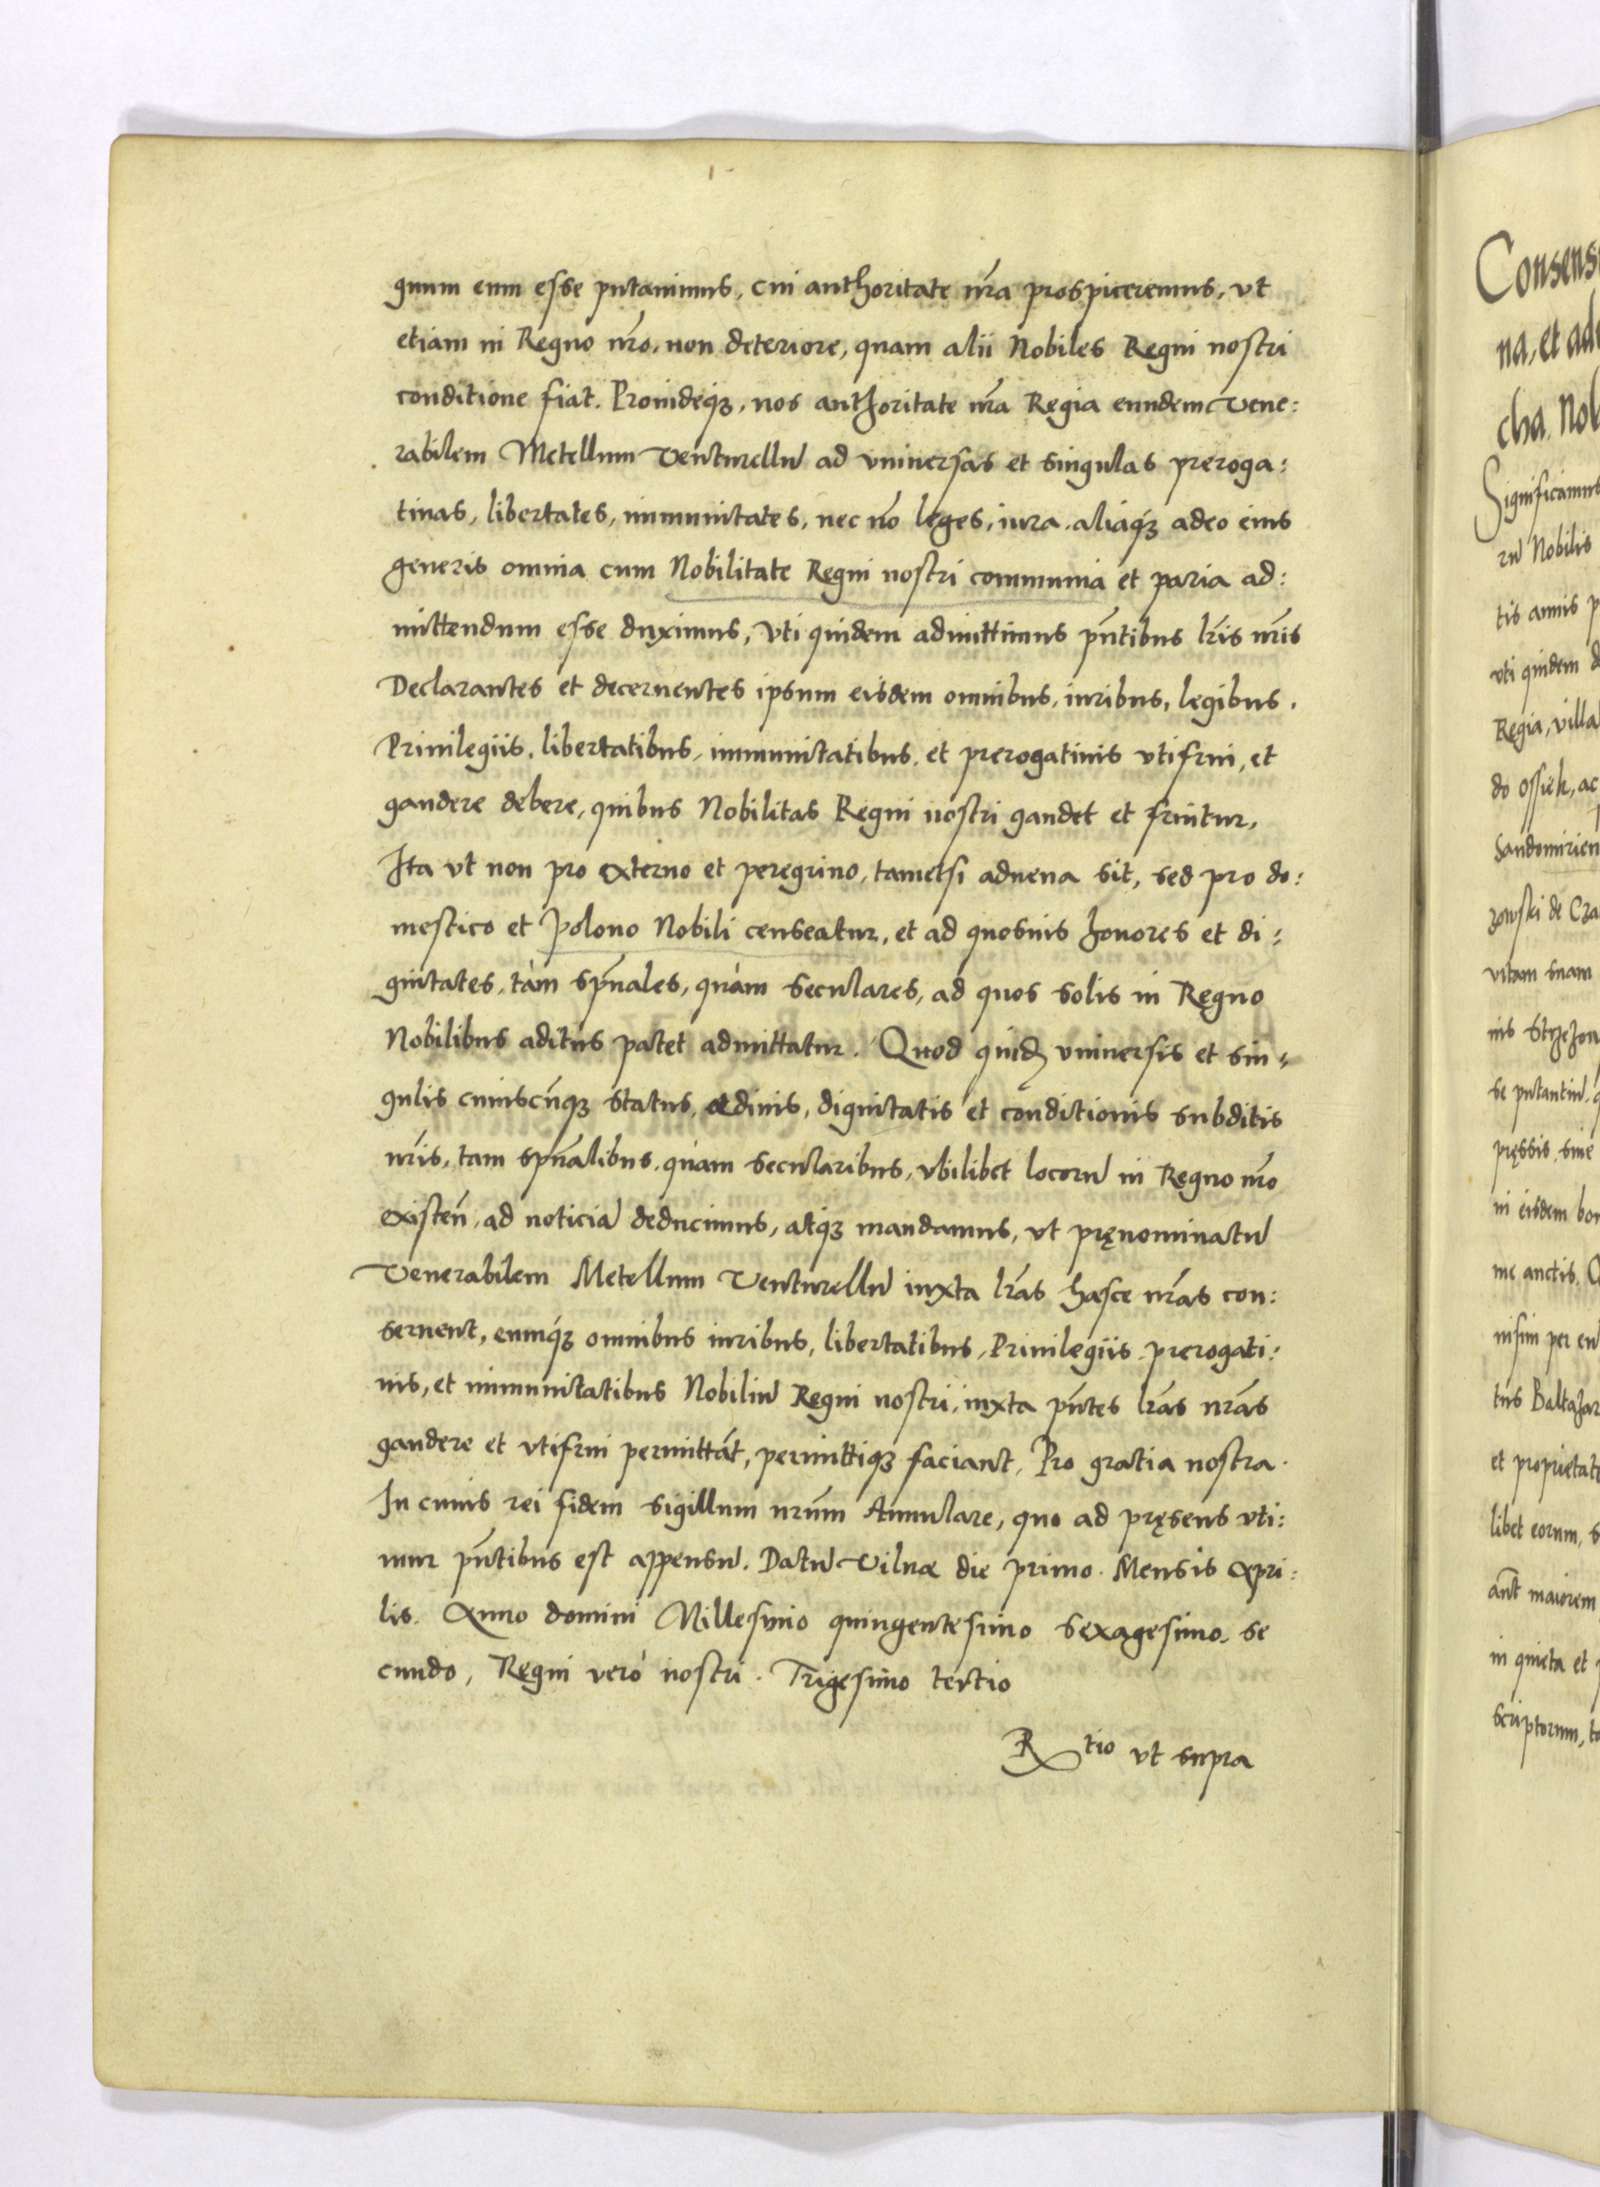 gnum eum esse putauimus, cui authoritate nr̃a prospiceremus, vt
etiam in Regno nr̃o, non deteriore, quam alii Nobiles Regni nostri
conditione fiat. Proindeq́ȝ, nos authoritate nr̃a Regia eundem Vene:
rabilem Metellum Venturellū ad vniuersas et singulas preroga:
tiuas, libertates, immunitates, nec nõ leges, iura aliaq́ȝ adeo eius
generis omnia cum Nobilitate Regni nostri communia et paria ad:
mittendum esse duximus, Vti quidem admittimus pñtibus lr̃is nr̃is
Declarantes et decernentes ipsum eisdem omnibus, iuribus, legibus,
Priuilegiis, libertatibus, immunitatibus, et prerogatiuis vtifrui, et
gaudere debere, quibus Nobilitas Regni nostri gaudet et fruitur,
Ita vt non pro externo et peregrino, tametsi aduena sit, sed pro do:
mestico et Polono Nobili censeatur, et ad quosuis honores et di:
gnitates, tàm spũales, quàm seculares, ad quos solis in Regno
Nobilibus aditus patet admittatur. Quod quidē vniuersis et sin:
gulis cuiuscũqȝ status, ordinis, dignitatis et conditionis subditis
nr̃is, tam spũalibus, quàm secularibus, vbilibet locorū in Regno nr̃o
existeñ, ad noticiā deducimus, atqȝ mandamus, vt pręnominatū
Venerabilem Metellum Venturellū iuxta lr̃as hasce nr̃as con:
seruent, eumq́ȝ omnibus iuribus, libertatibus, Priuilegiis, prerogati:
uis, et immunitatibus Nobiliū Regni nostri, iuxta pñtes lr̃as nr̃as
gaudere et vtifrui permittãt, permittiqȝ faciant, Pro gratia nostra.
In cuius rei fidem sigillum nr̃um Annulare, quo ad pręsens vti:
mur pñtibus est appensū. Datū Vilnæ die primo Mensis Apri:
lis. Anno domini Millesimo quingentesimo sexagesimo, se
cundo, Regni verò nostri. Trigesimo tertio
Rtio vt supra
Consens
na, et adu
cha. Nob
Significamus
rū Nobilis
tis annis p
vti quidem d
Regia, villa
do Ossiek, ac
Sandomirien
rowski de Cza
vitam suam
nis Strzezon
se putantiū
pręssis, sine
in eisdem bon
me auctis.
nisim per eū
tus Baltazar
et proprietate
libet eorum, s
ant̃ maiorem
in quieta et p
scriptorum, ta